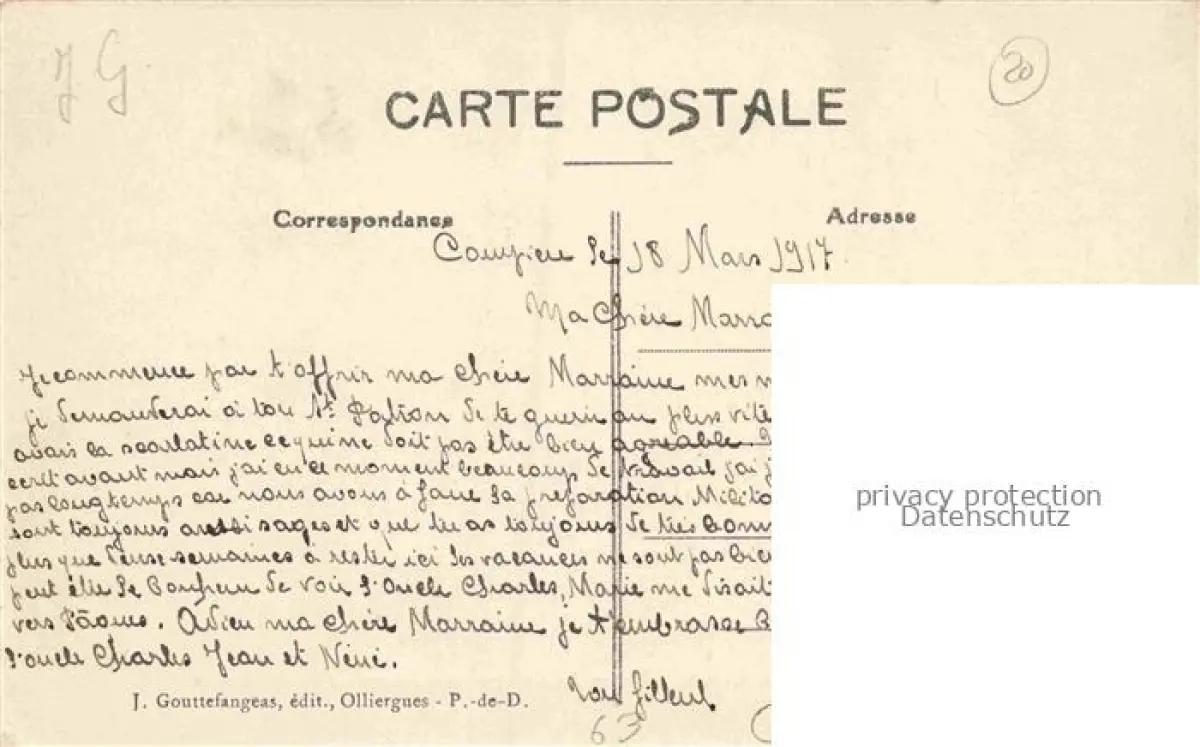 J G
20
CARTE POSTALE
Correspondance
Adresse
le 18 Mars 1917
Ma Chère
Je commence par t'offrir ma chère Marraine mes
je demanderai à ton St. Patron de te guerir au plus vite
avais la scarlatine ce qui ne doit pas être bien agreable.
ecrit avant mais j'ai eu ce moment beaucoup de travail j'ai
pas longtemps car nous avons à faire la préparation
sont toujours aussi sages et que tu as toujours de très
plus que deux semaines à rester ici les vacances ne sont pas
peut être le Bonheur de voir l'oncle Charles, Marie me disait
vers Pâques. Adieu ma chère Marraine je t'embrasse
l'oncle Charles Jean et Néné.
Ton filleul
J. Gouttefangeas, édit., Olliergues - P.-de-D.
63
privacy protection
Datenschutz